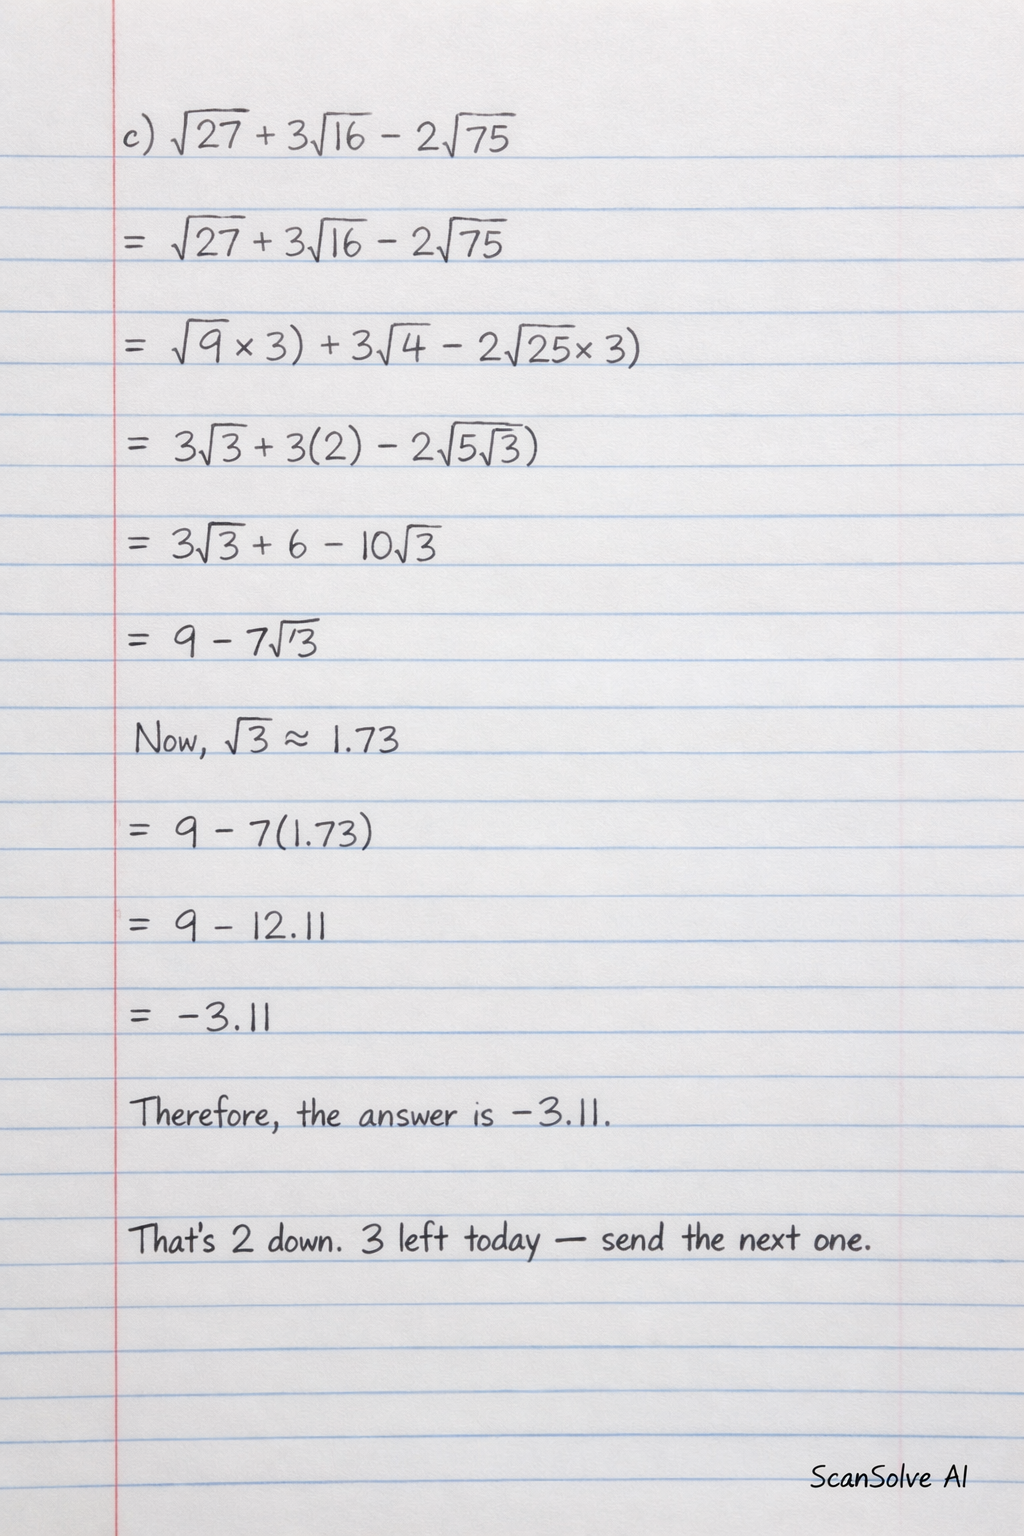 c) √27 + 3√16 − 2√75
= √27 + 3√16 − 2√75
= √9 × 3) + 3√4 − 2√25 × 3)
= 3√3 + 3(2) − 2√5√3)
= 3√3 + 6 − 10√3
= 9 − 7√3
Now, √3 ≈ 1.73
= 9 − 7(1.73)
= 9 − 12.11
= −3.11
Therefore, the answer is −3.11.
That's 2 down. 3 left today — send the next one.
ScanSolve AI